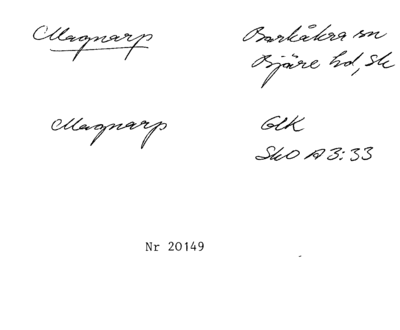 Magnarp
Barkåkra sn
Bjäre hd, Sk
Magnarp
GEK
SkO A3:33
Nr 20149